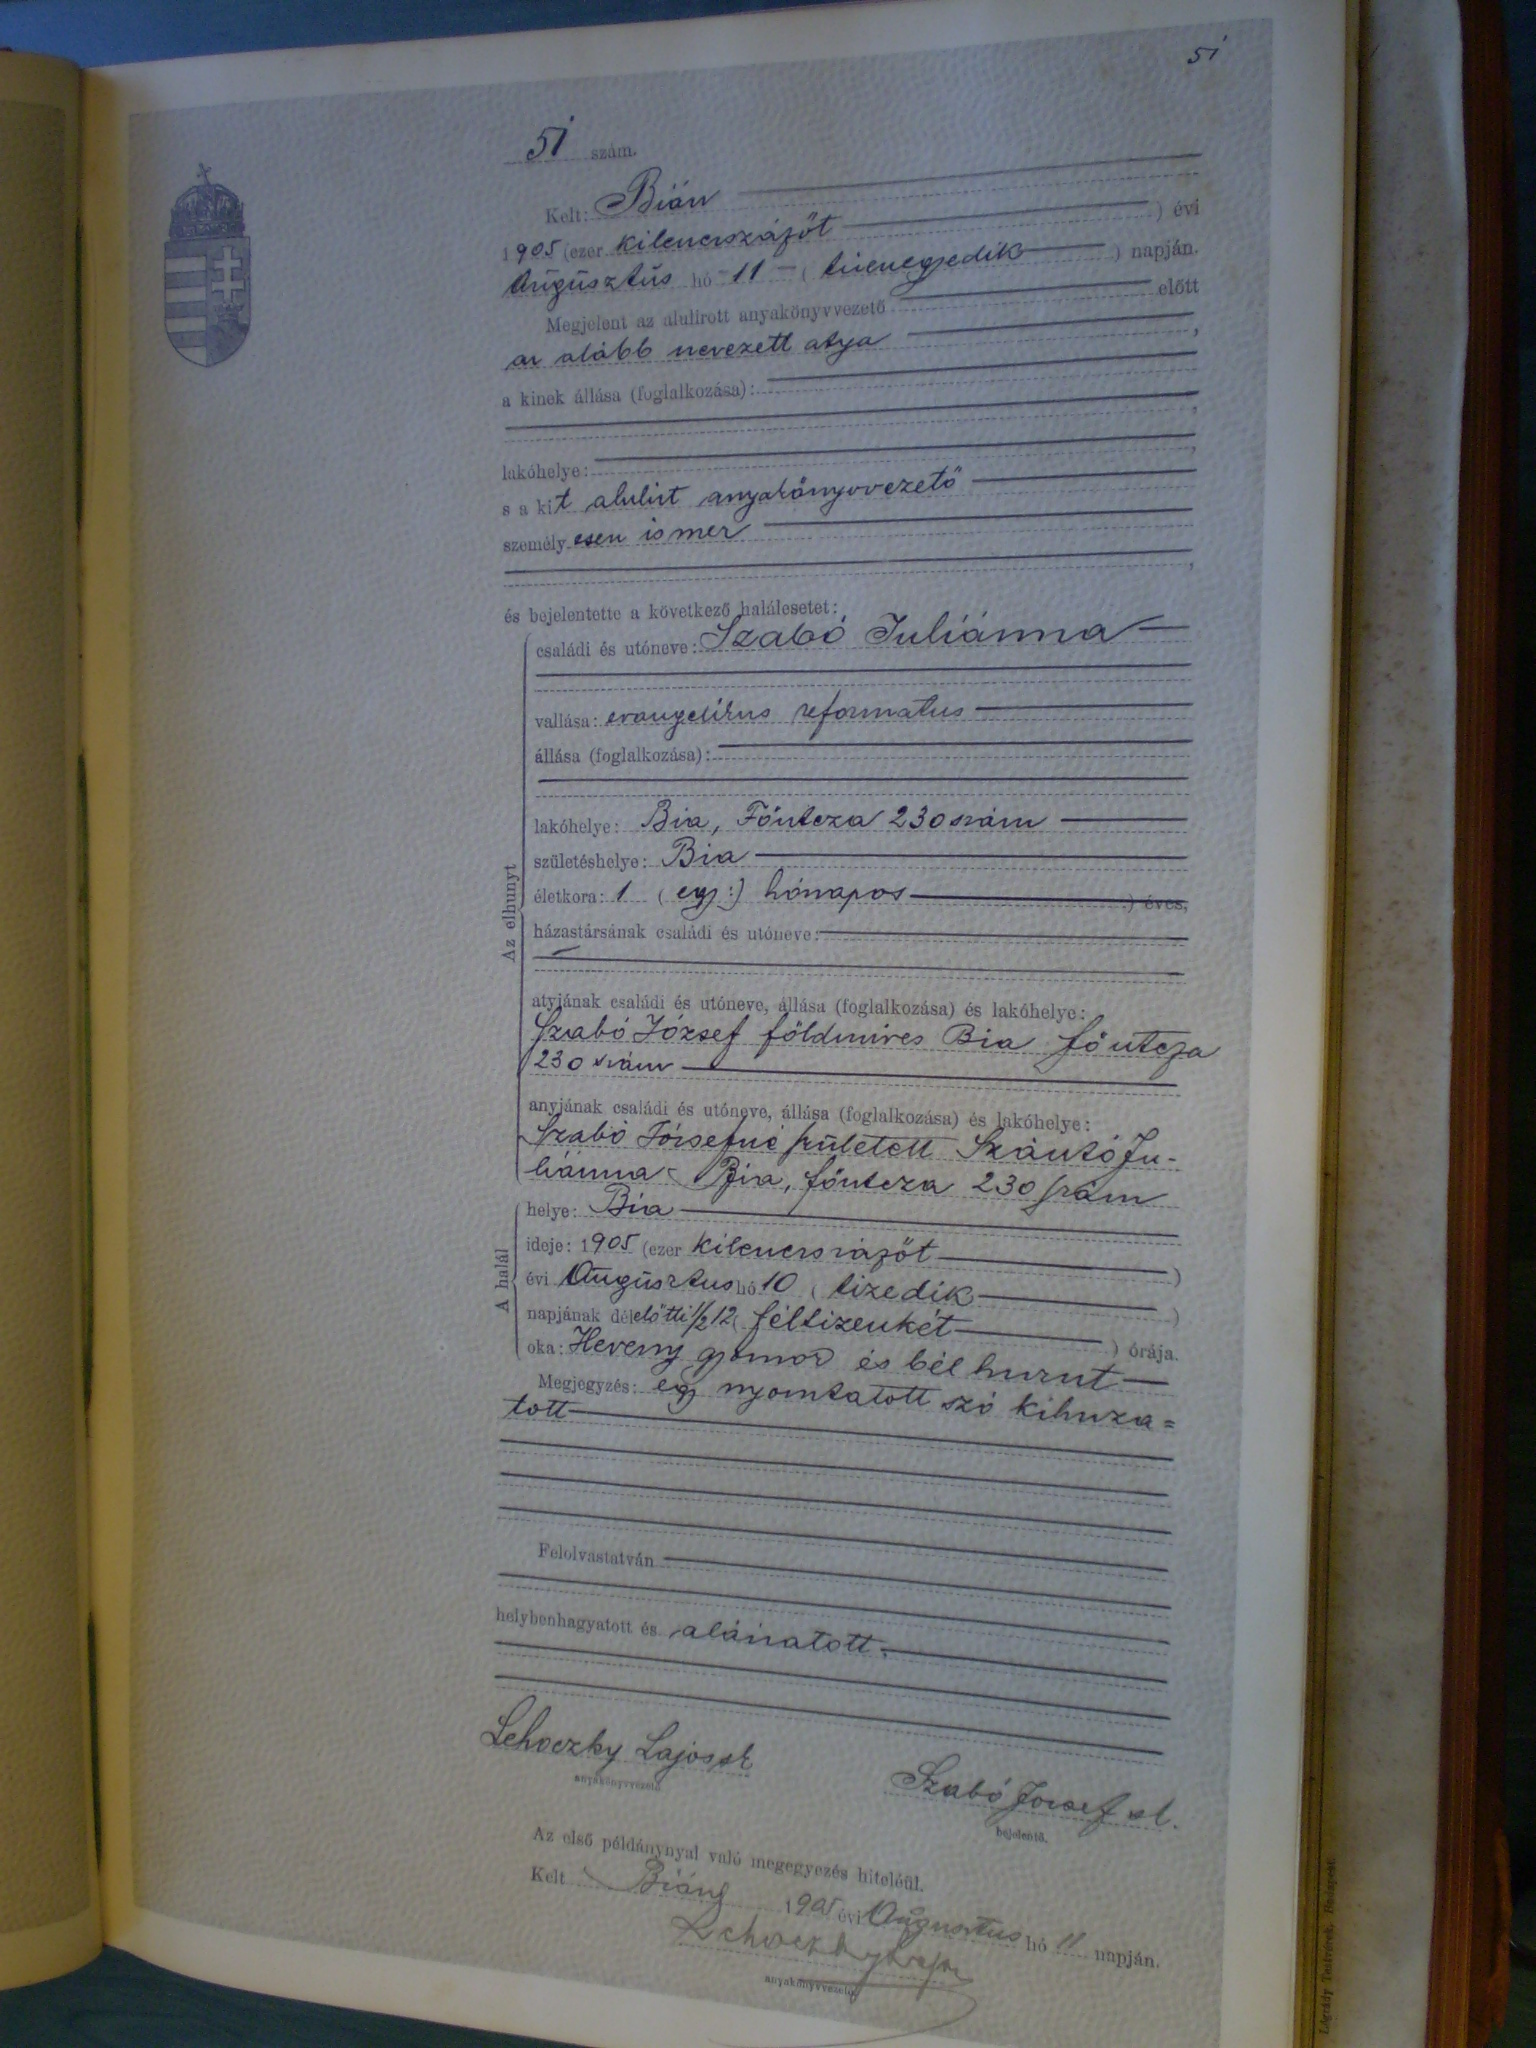 51
51 szám.
Kelt: Bián
1905 (ezer kilenczszázöt ) évi
Augusztus hó 11 ( tizenegyedik ) napján.
Megjelent az alulirott anyakönyvvezető előtt
az alább nevezett atya ,
a kinek állása (foglalkozása):
,
lakóhelye: ,
s a kit alulirt anyakönyvvezető
személyesen ismer
,
és bejelentette a következő halálesetet:
Az elhunyt
családi és utóneve: Szabó Juliánna
vallása: evangelikus reformatus
állása (foglalkozása):
lakóhelye: Bia, Főutcza 230 szám
születéshelye: Bia
életkora: 1 ( egy :) hónapos ) éves,
házastársának családi és utóneve:
atyjának családi és utóneve, állása (foglalkozása) és lakóhelye:
Szabó József földmives Bia főutcza
230 szám
anyjának családi és utóneve, állása (foglalkozása) és lakóhelye:
Szabó Józsefné született Szántó Ju-
liánna Bia, főutcza 230 szám
A halál
helye: Bia
ideje: 1905 (ezer kilenczszázöt )
évi Augusztus hó 10 ( tizedik )
napjának délelőtti 1/2 12 ( féltizenkét ) órája.
oka: Heveny gyomor és bél hurut
Megjegyzés: egy nyomtatott szó kihuza=
tott
Felolvastatván
helybenhagyatott és aláiratott.
Lehoczky Lajos sk
anyakönyvvezető
Szabó József sk.
bejelentő.
Az első példánynyal való megegyezés hiteléül.
Kelt Bián 1905 évi Augusztus hó 11 napján.
Lehoczky Lajos
anyakönyvvezető.
Légrády Testvérek, Budapest.